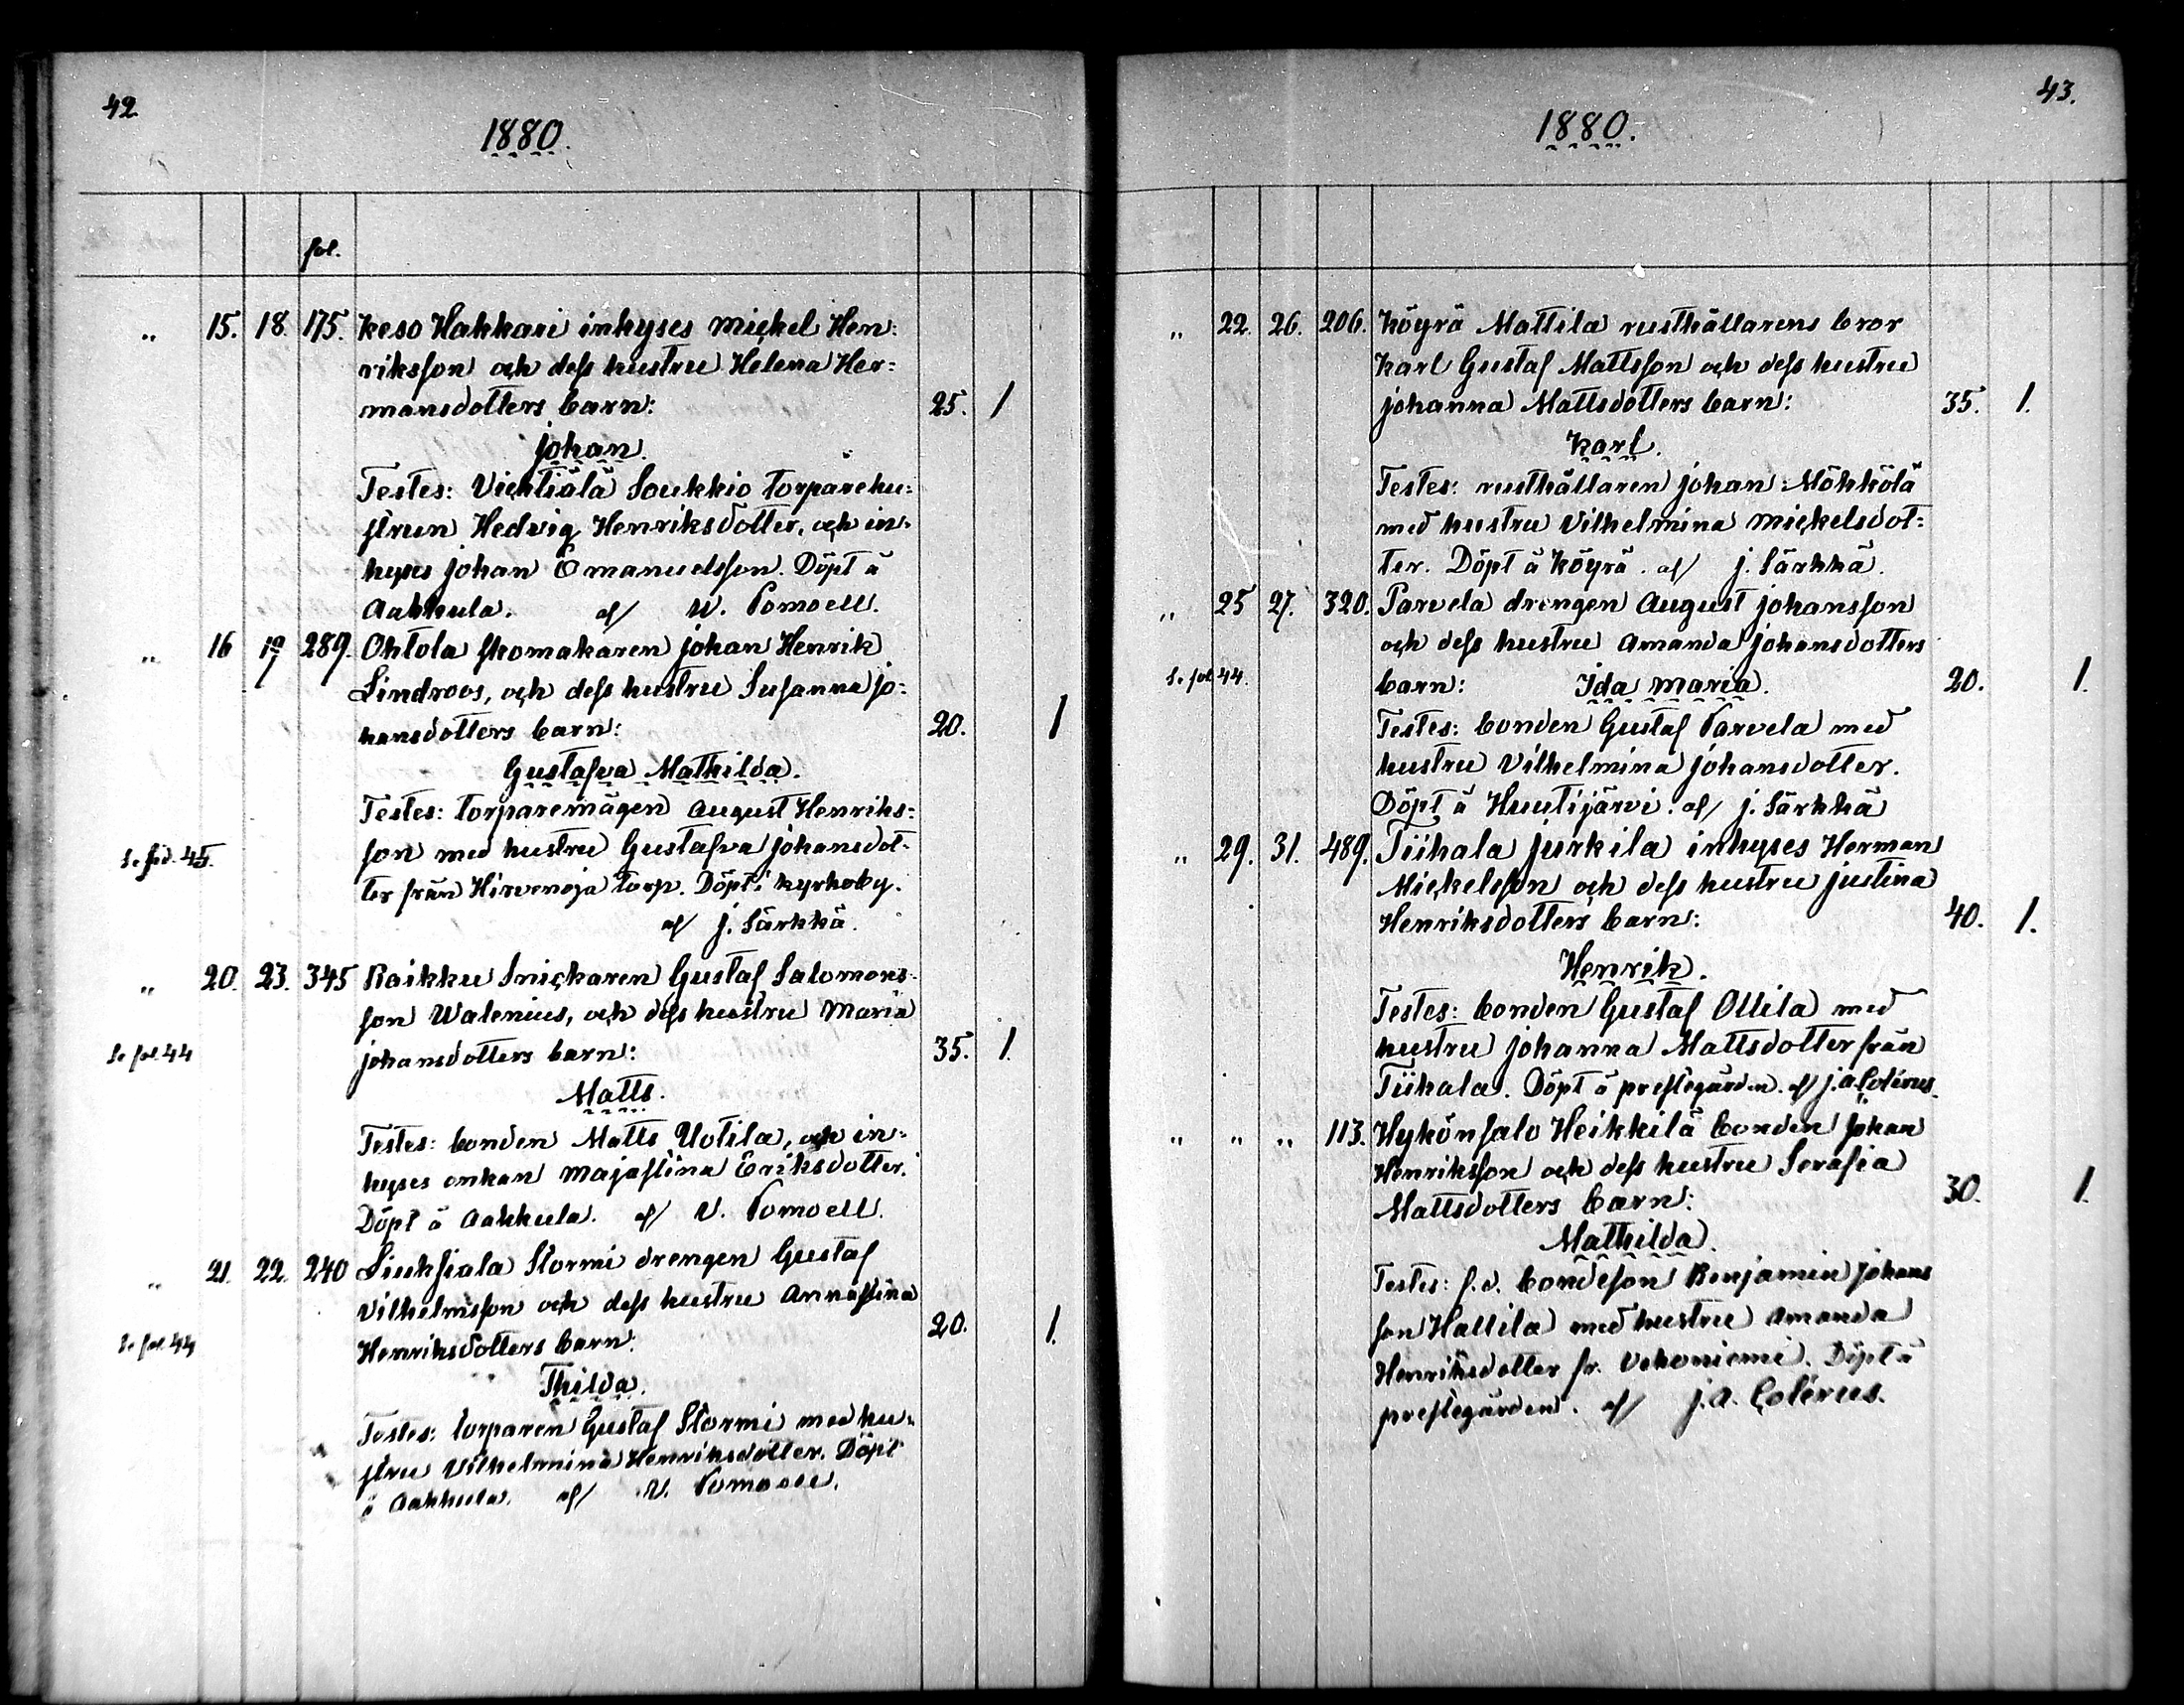 42.
1880.
fol.
„ 15. 18. 175. Keso Hakkari inhyses Mickel Hen-
riksson och dess hustru Helena Her-
mansdotters barn: 25. 1
Johan.
Testes: Vichtiälä Soukkio torparehu-
strun Hedvig Henriksdotter, och in-
hyses Johan Emanuelsson. Döpt å
Aakkula. af V. Pomoell.
„ 16 19 289. Ohtola skomakaren Johan Henrik
Lindroos, och dess hustru Susanna Jo-
hansdotters barn: 20. 1
Gustafva Mathilda.
Testes: torparemågen August Henriks-
Se fol. 45. son med hustru Gustafva Johansdot-
ter från Hirvenoja torp. Döpt i kyrkoby.
af J. Särkkä.
„ 20. 23. 345 Raikku Snickaren Gustaf Salomons-
son Walenius, och dess hustru Maria
Se fol. 44 Johansdotters barn: 35. 1.
Matts.
Testes: bonden Matts Uotila, och in-
hyses enkan Majastina Eriksdotter.
Döpt å Aakkula. af V. Pomoell.
„ 21. 22. 240 Liuksiala Stormi drengen Gustaf
Vilhelmsson och dess hustru Annastina
Se fol. 44 Henriksdotters barn: 20. 1.
Thilda.
Testes: torparen Gustaf Stormi med hu-
stru Vilhelmina Henriksdotter. Döpt
å Aakkula. af V. Pomoell.
43.
1880.
„ 22. 26. 206. Köyrä Mattila rusthållarens bror
Karl Gustaf Mattsson och dess hustru
Johanna Mattsdotters barn: 35. 1.
Karl.
Testes: rusthållaren Johan Möhkölä
med hustru Vilhelmina Mickelsdot-
ter. Döpt å Köyrä. af J. Särkkä.
„ 25 27. 320. Parvela drengen August Johansson
och dess hustru Amanda Johansdotters
Se fol. 44. barn: Ida Maria. 20. 1.
Testes: bonden Gustaf Parvela med
hustru Vilhelmina Johansdotter.
Döpt å Huutijärvi. af J. Särkkä
„ 29. 31. 489. Tiihala Jurkila inhyses Herman
Mickelsson och dess hustru Justina
Henriksdotters barn: 40. 1.
Henrik.
Testes: bonden Gustaf Ollila med
hustru Johanna Mattsdotter från
Tiihala. Döpt å prestegården. af J. A. Colérus.
„ „ „ 113. Hykönsalo Heikkilä bonden Johan
Henriksson och dess hustru Serafia
Mattsdotters barn: 30. 1.
Mathilda.
Testes: f.d. bondeson Benjamin Johans
son Hallila med hustru Amanda
Henriksdotter fr. Vehoniemi. Döpt å
prestegården. af J. A. Colérus.